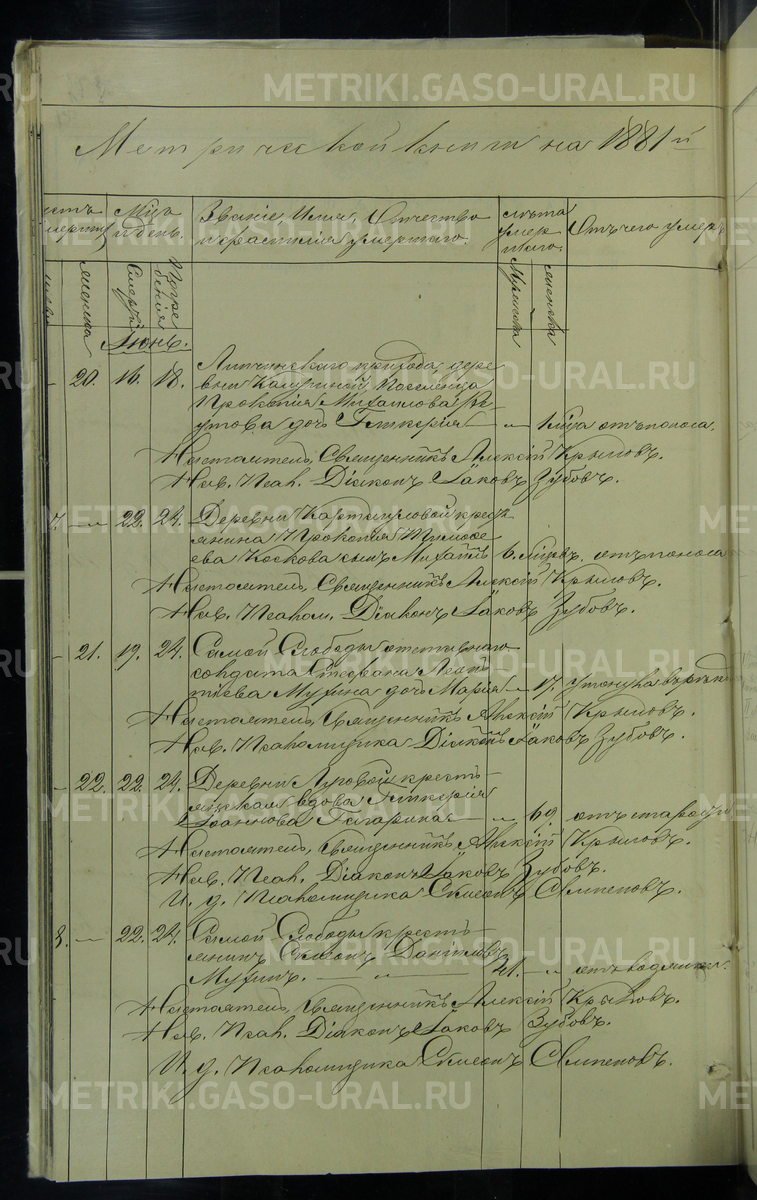 METRIKI.GASO-URAL.RU
Метрической книги на 1881 й
Мѣц. и день.
Званіе, Имя, Отчество и фамилія умершаго.
лѣта умер шаго.
Отъ чего умеръ
женска
Смерти
Погре бенія
Мужеска
женска
Іюнь.
20. 16. 18. прихода дере
вни Поселенца
Прокопія Михаилова
дочь Гликерія — 1 мѣца отъ поноса.
Настоятель, Священникъ Алексій Крыловъ.
Исп. Псал. Діаконъ Іаковъ Зубовъ.
7. — 22. 24. Деревни крест
янина Прокопія Тимофе
ева Коскова сынъ Михаилъ 6. мѣцев. отъ поноса
Настоятель, Священникъ Алексій Крыловъ.
Исп. Псалом. Діаконъ Іаковъ Зубовъ.
— 21. 19. 24. Самой Слободы отставнаго
солдата Стефана Леон
тіева Мухина дочь Марія — 17. утонула въ рѣкѣ
Настоятель, Священникъ Алексій Крыловъ.
Исп. Псаломщика Діаконъ Іаковъ Зубовъ.
— 22. 22. 24. Деревни Луговой крест
янская вдова Гликерія
Іоаннова Гагарина — 69. отъ старости
Настоятель, Священникъ Алексій Крыловъ.
Исп. Псал. Діаконъ Іаковъ Зубовъ.
И. д. Псаломщика Симеонъ
8. — 22. 24. Самой Слободы крест
янинъ Симеонъ Даніиловъ
Мухинъ. — 41. — отъ водянки.
Настоятель, Священникъ Алексій Крыловъ.
Исп. Псал. Діаконъ Іаковъ Зубовъ.
И. д. Псаломщика Симеонъ